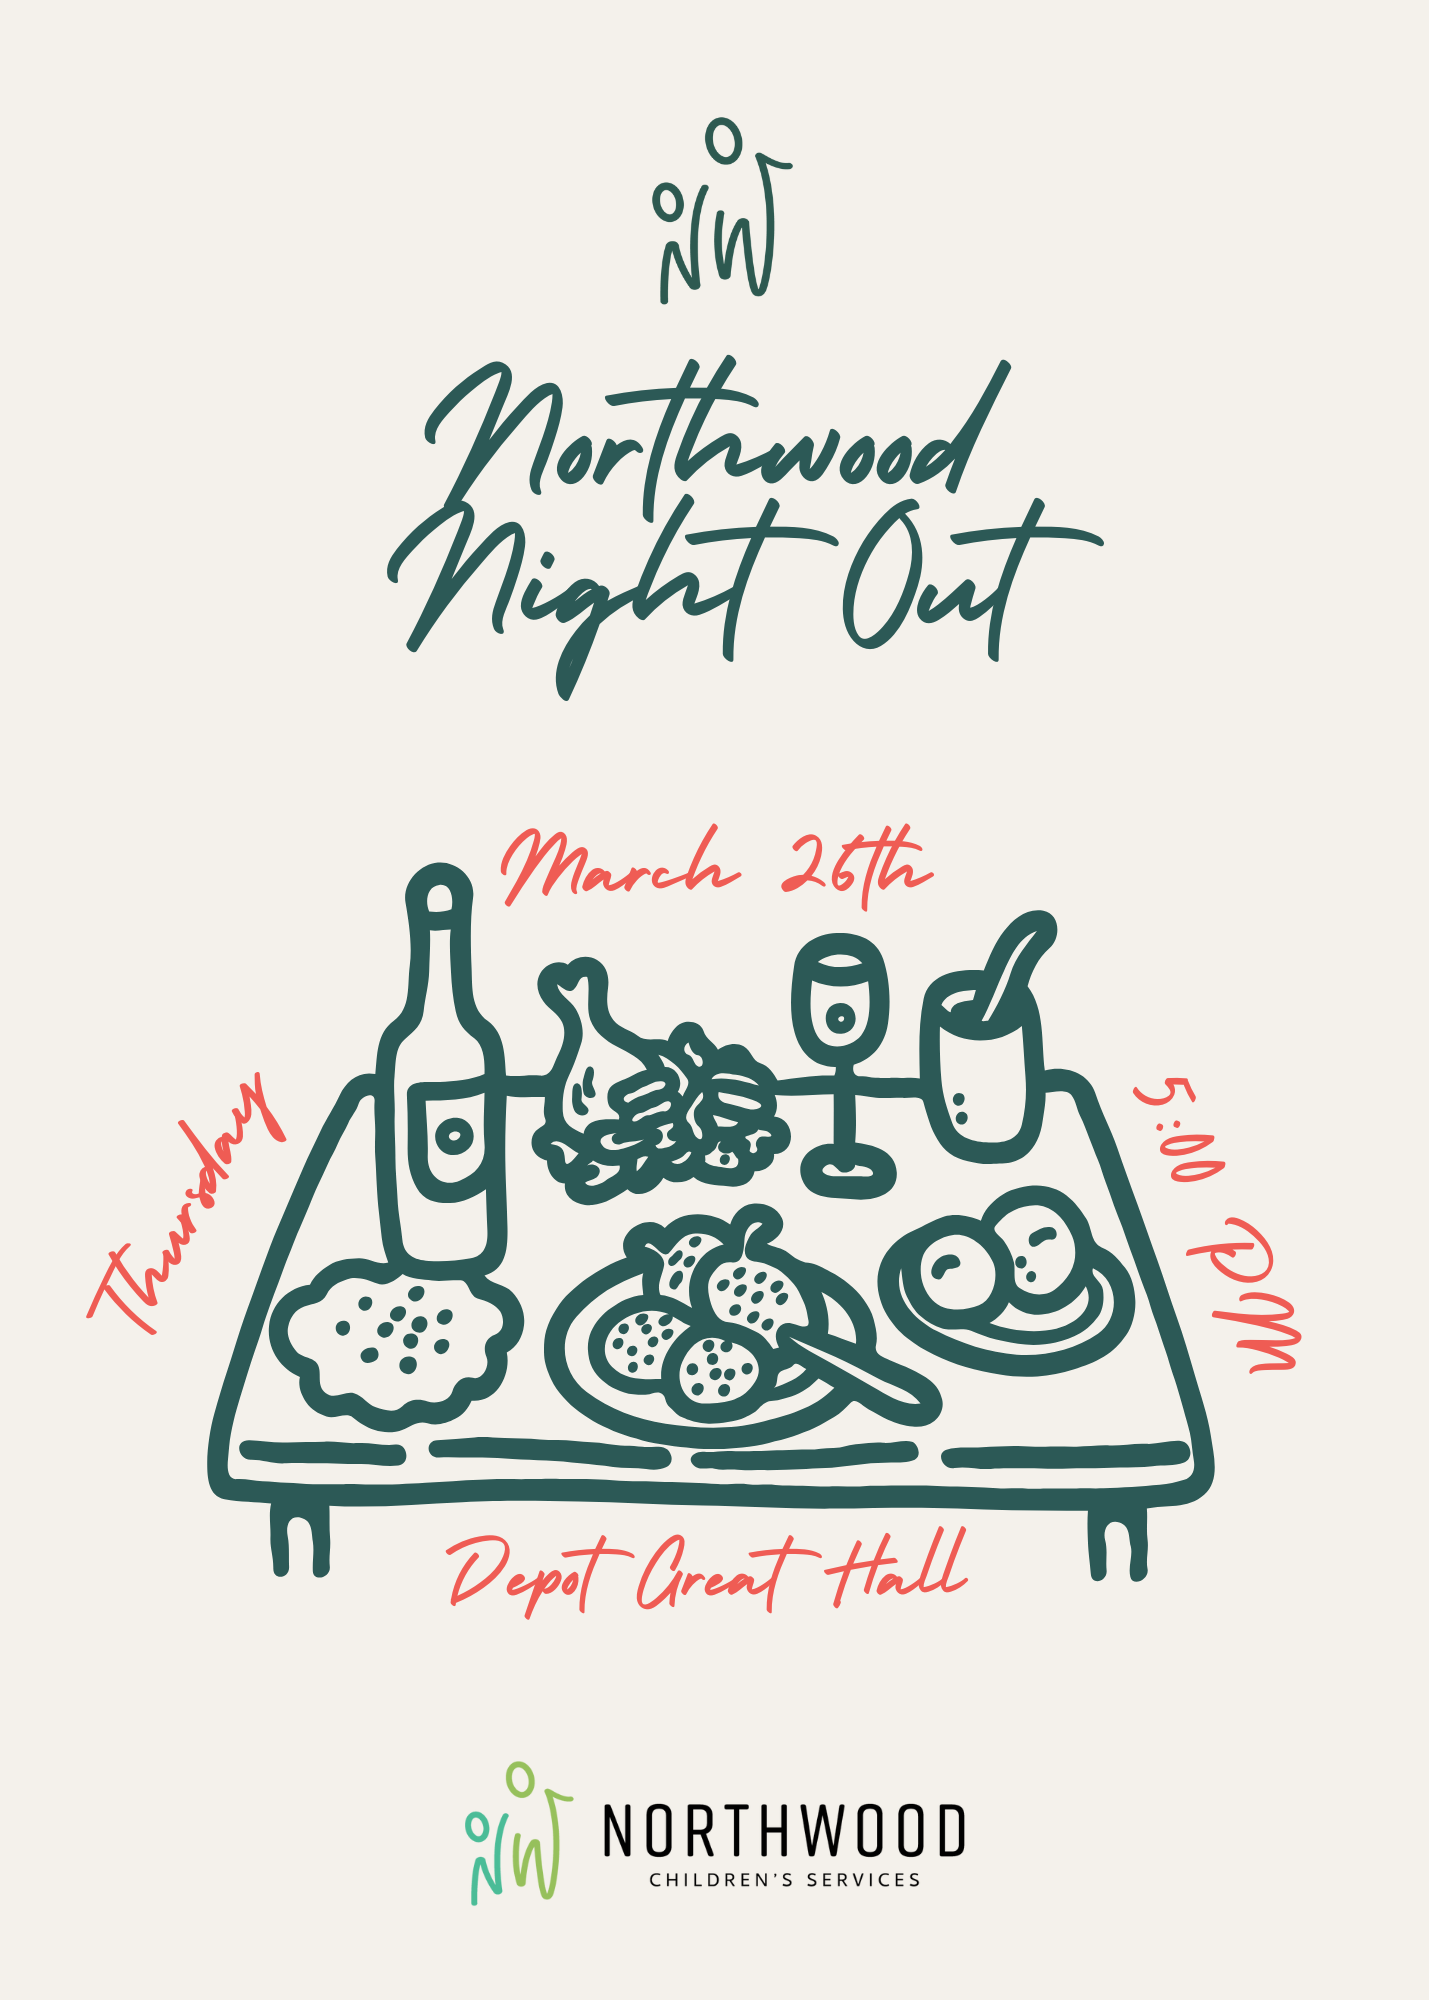 NW
Northwood
Night Out
March 26th
Thursday
5:00 PM
Depot Great Hall
NW
NORTHWOOD
CHILDREN'S SERVICES